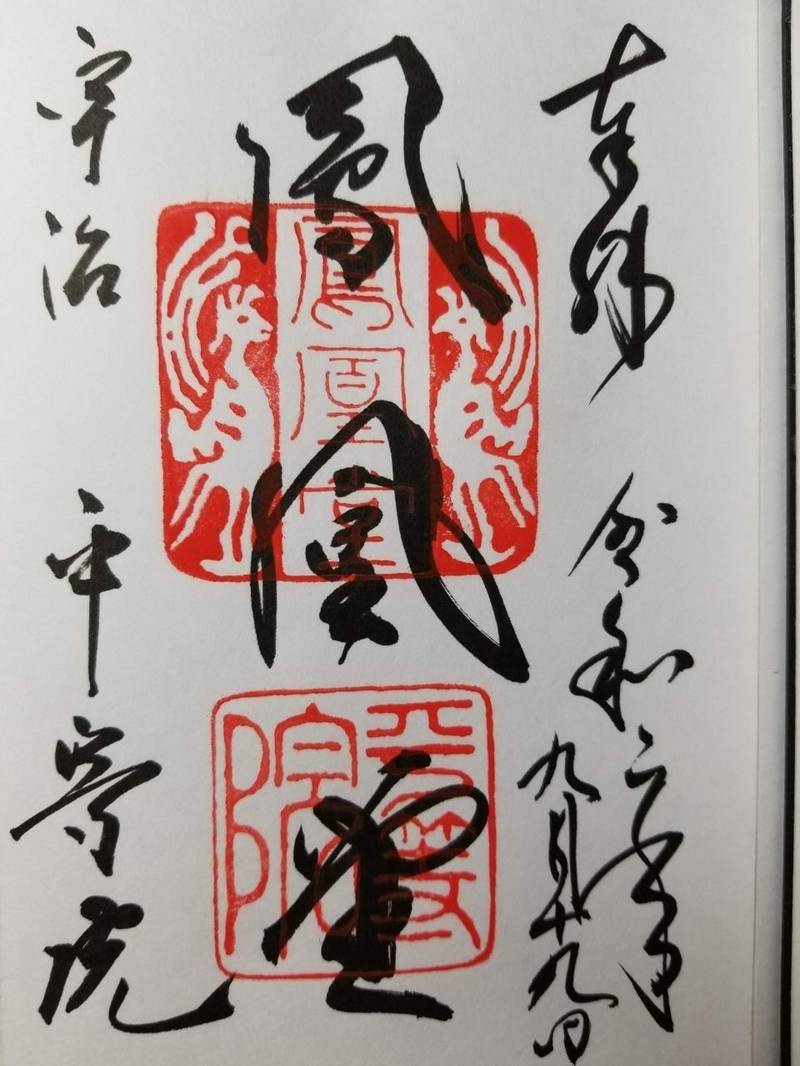 奉拝
令和二年
九月十九日
鳳凰堂
宇治
平等院
鳳凰堂
平等院